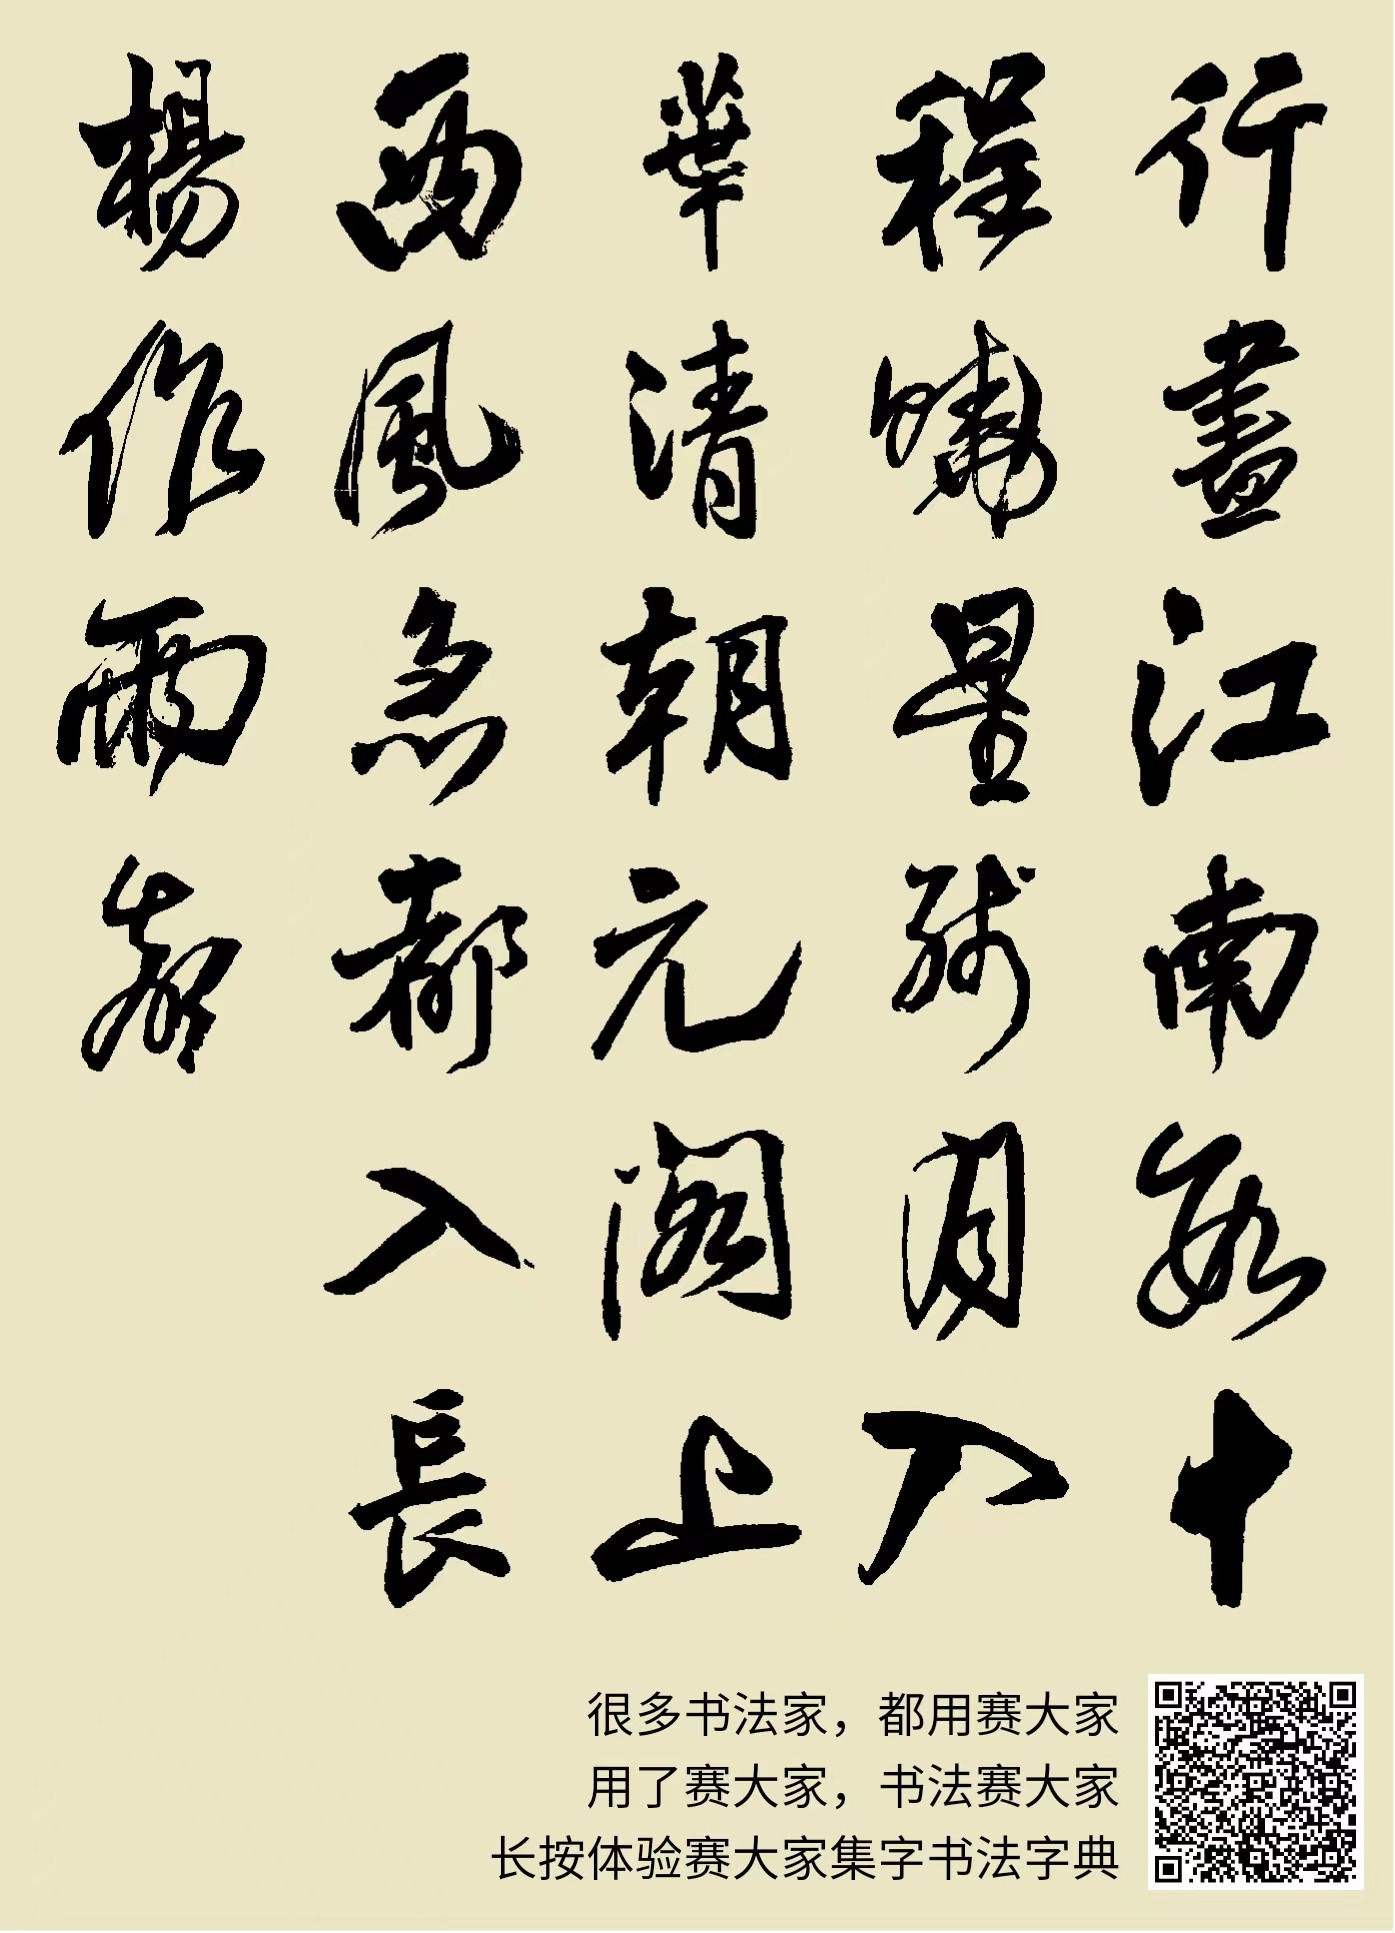 行盡江南數十
程曉星殘月入
華清朝元閣上
西風急都入長
楊作雨聲
很多书法家，都用赛大家
用了赛大家，书法赛大家
长按体验赛大家集字书法字典